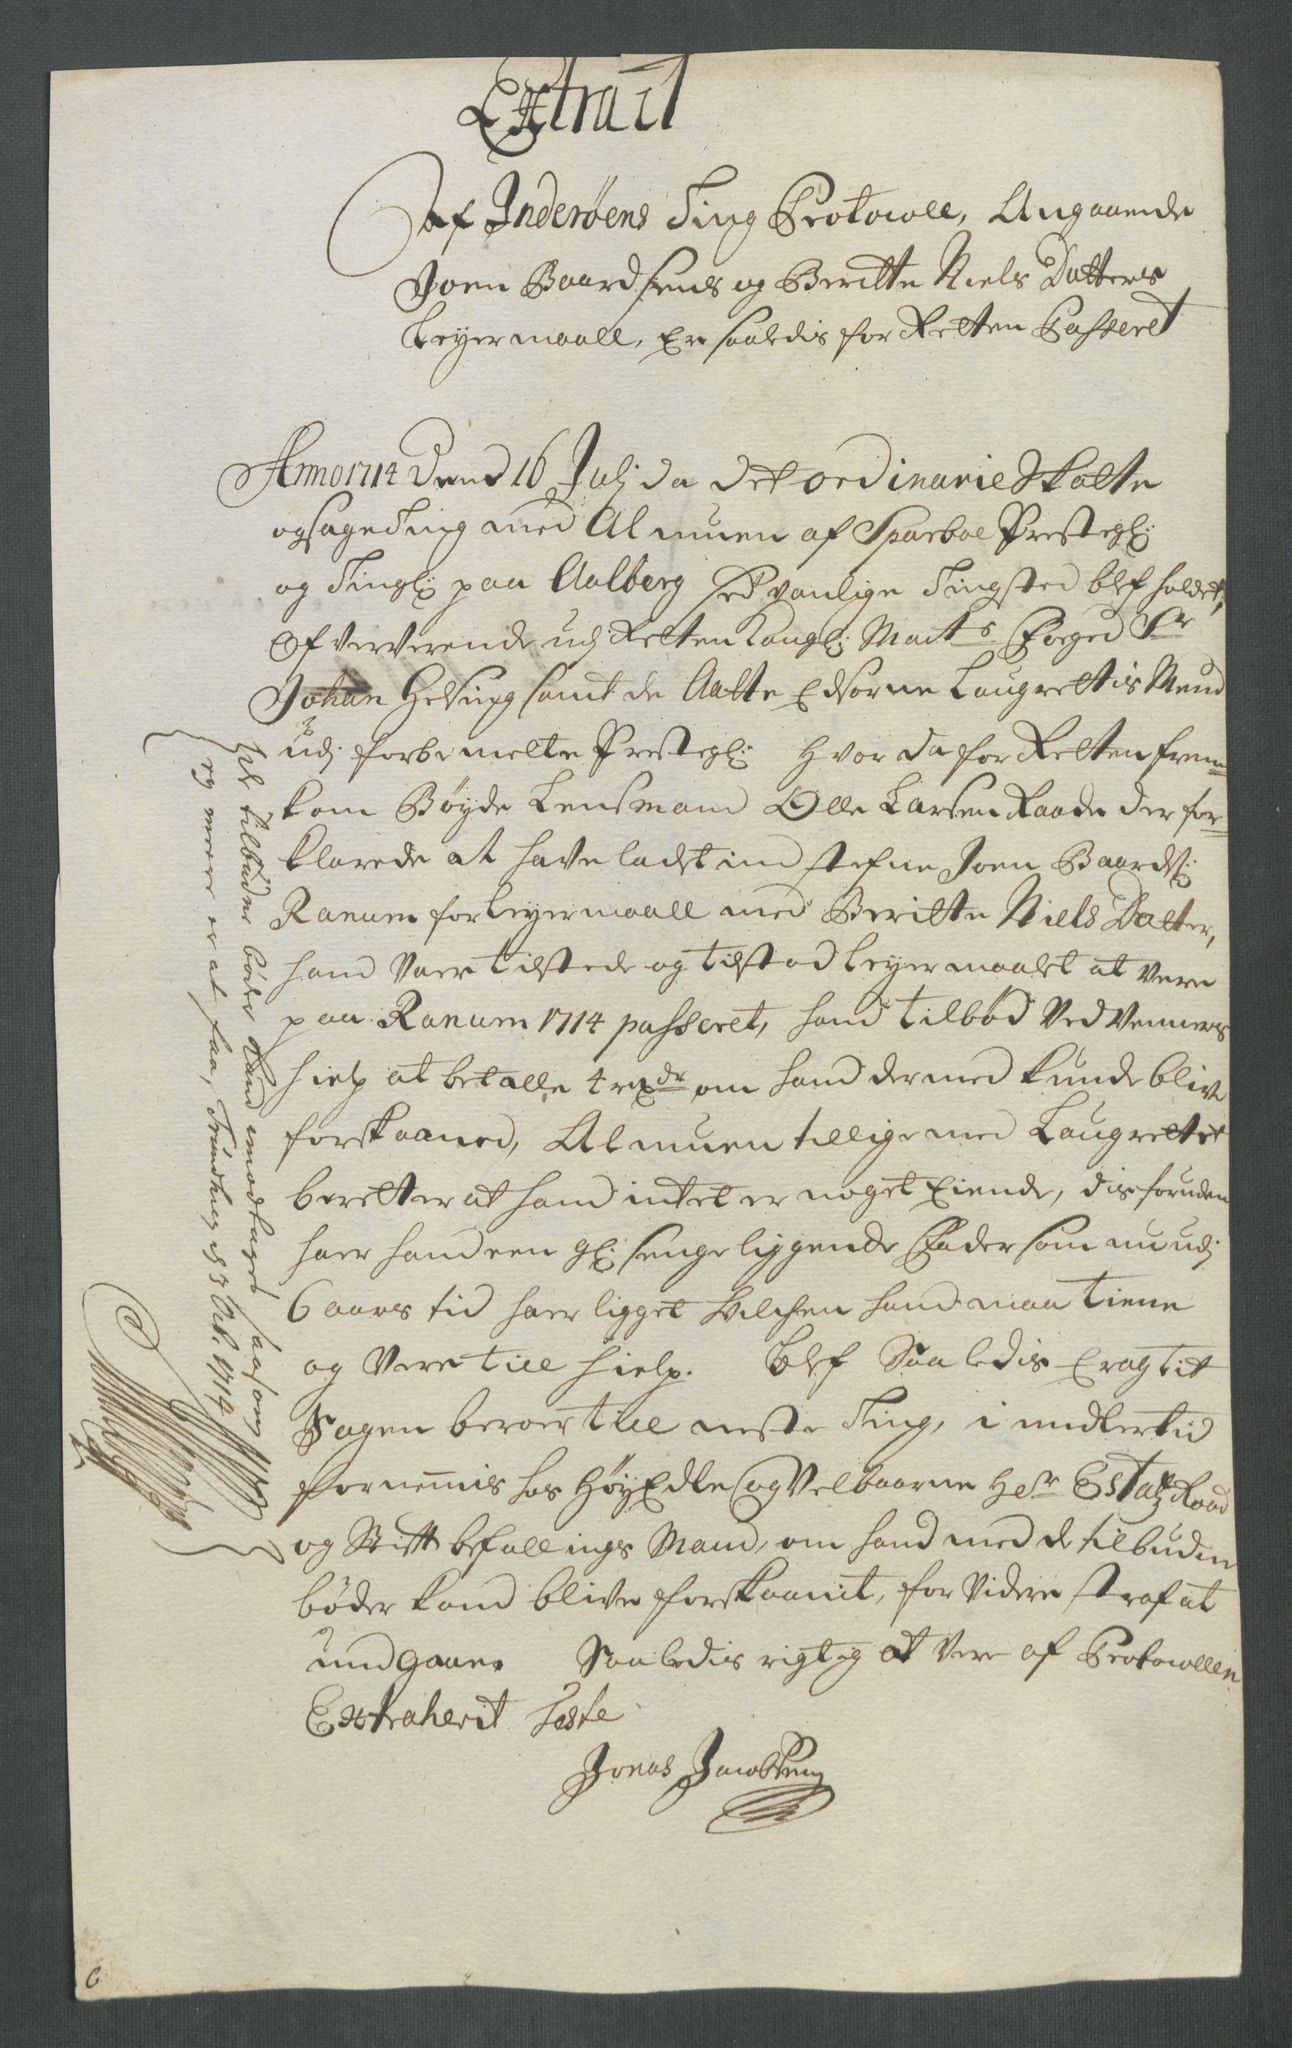 Extrait
af Inderöens Ting Protocoll, Angaaende
Joen Baardsens og Beritte Niels Datters
Leyermaall, Er saaledis for Retten Passeret
Anno 1714 Dend 16 Julj da det ordinarie Skatte
og sage Ting med Almuen af Sparboe Prestegl:
og Tingl: paa Aalberg sedvanlige Tingsted blef holdet,
Ofververende udj Retten Kongl: Maits Foged Sr
Johan Hetting samt de Aatte Edsorne Laugrettis Mend
udj forbemelte Prestegl: Hvor da for Retten frem=
kom Bøyde Lensmand Olle Larsen Raade der for=
klarede at have ladet ind stefne Joen Baards:
Ranum for Leyermaall med Beritte Niels Datter,
hand Vaer tilstede og tilstod Leyermaalet at Vere
paa Ranum 1714 passeret, hand tilbød Ved Venners
hielp at betalle 4 rixdr om hand dermed kunde blive
forskaaned, Almuen tillige med Laugrettet
beretter at hand intet er noget Eiende, dis foruden
haer hand een gl: sengeliggende Fader som nu udj
6 aars tid haer ligget hvilchen hand maa tiene
og Vere till hielp. Blef Saaledis Eragtit
Sagen beroer till neste Ting, imidlertid
fornemmis hos Høy Edle og Velbaarne Hr Estatz Raad
og Stiftbefallings Mand, om hand med de tilbudne
bøder kand blive forskaanit, for Videre straf at
undgaae. Saaledis rigtig at Vere af Protocollen
Extraherit Teste
Jonas Jacobsen
tilbudne bøder kand imodtages saasom
ey meere er at faa, Trundhm d 3 1714